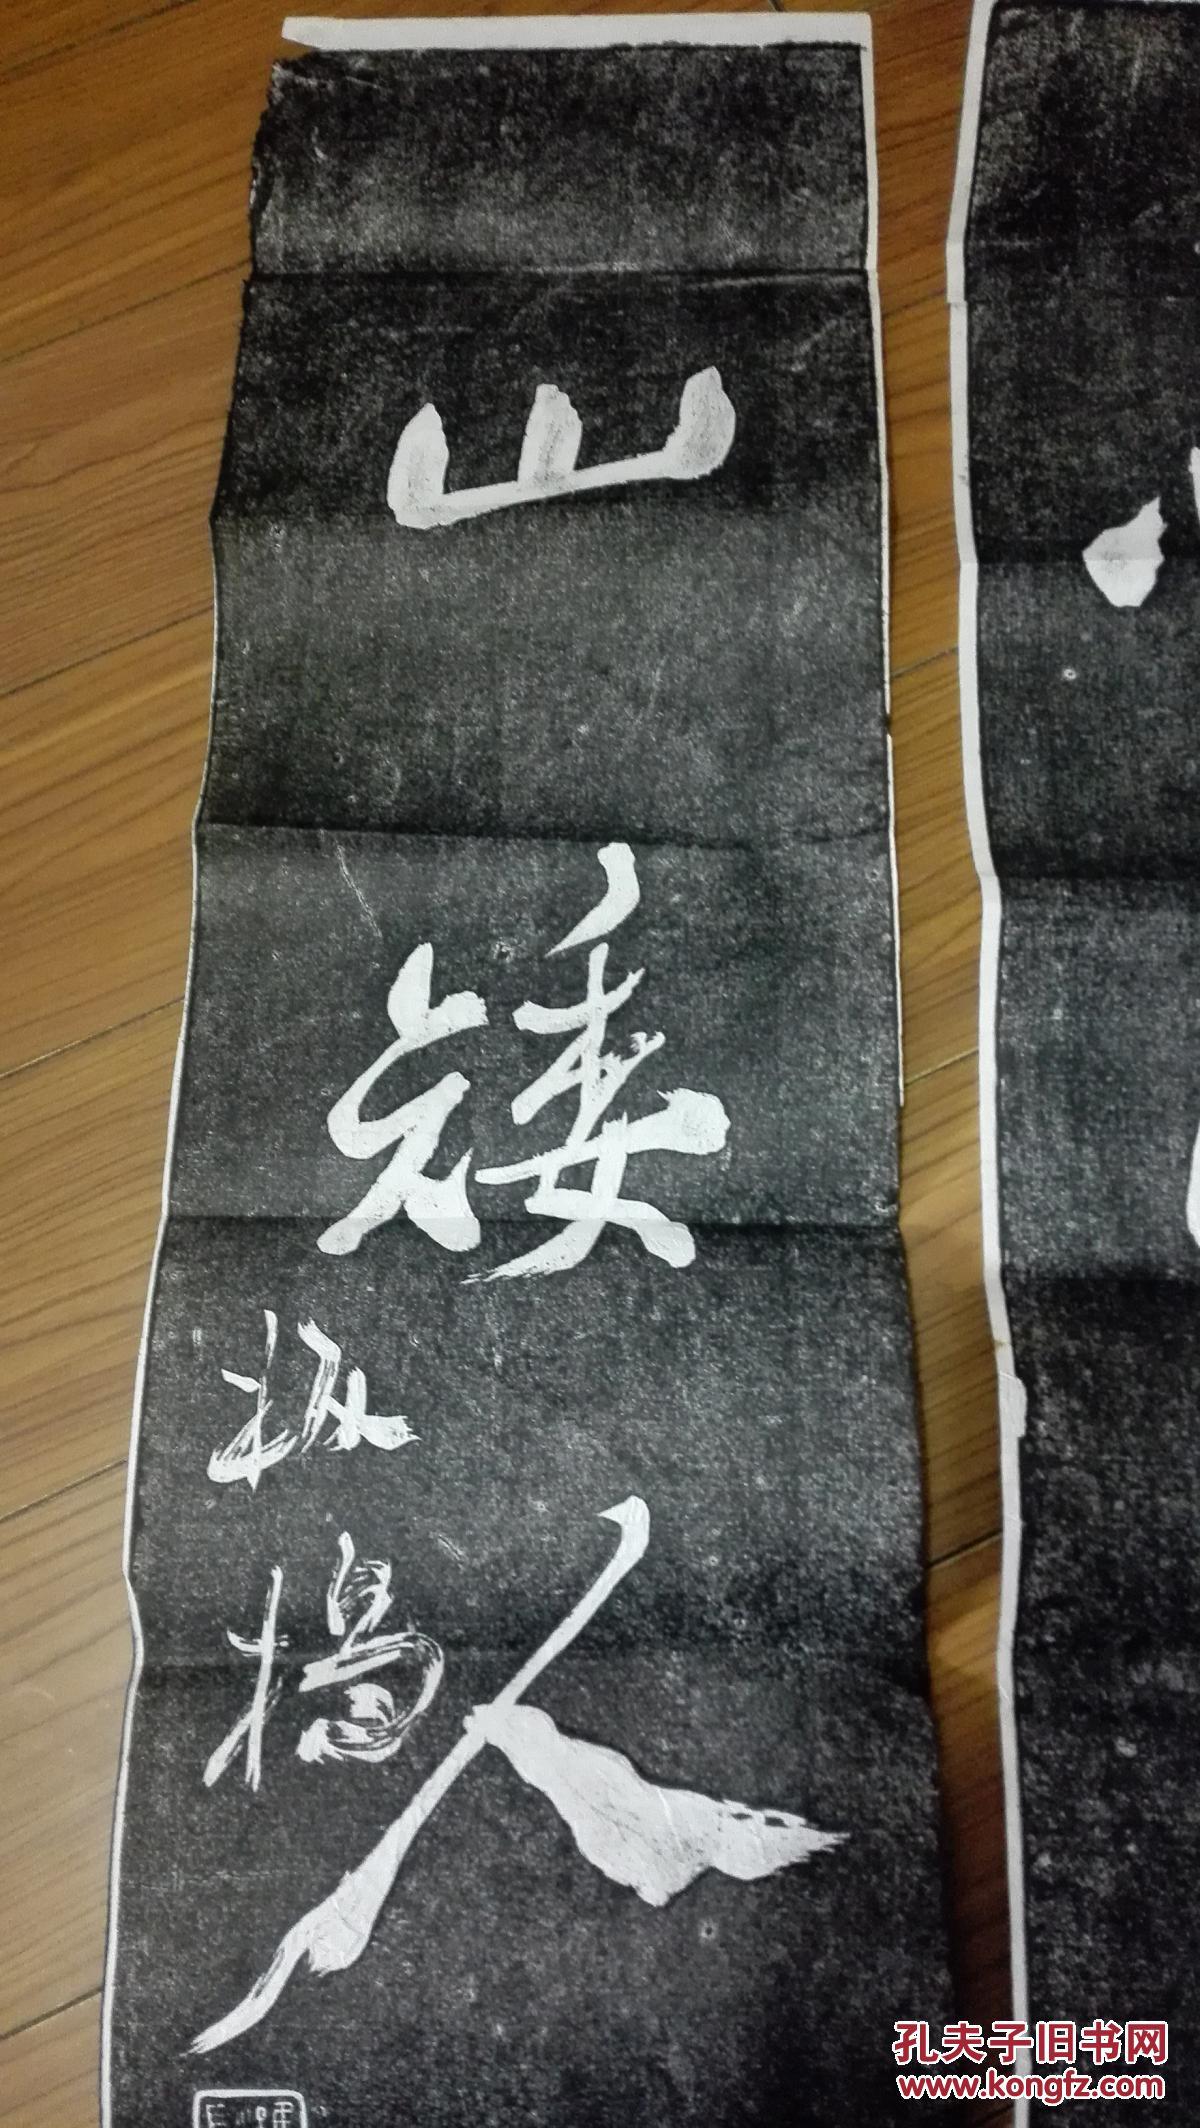 山矮人
板橋
孔夫子旧书网
www.kongfz.com